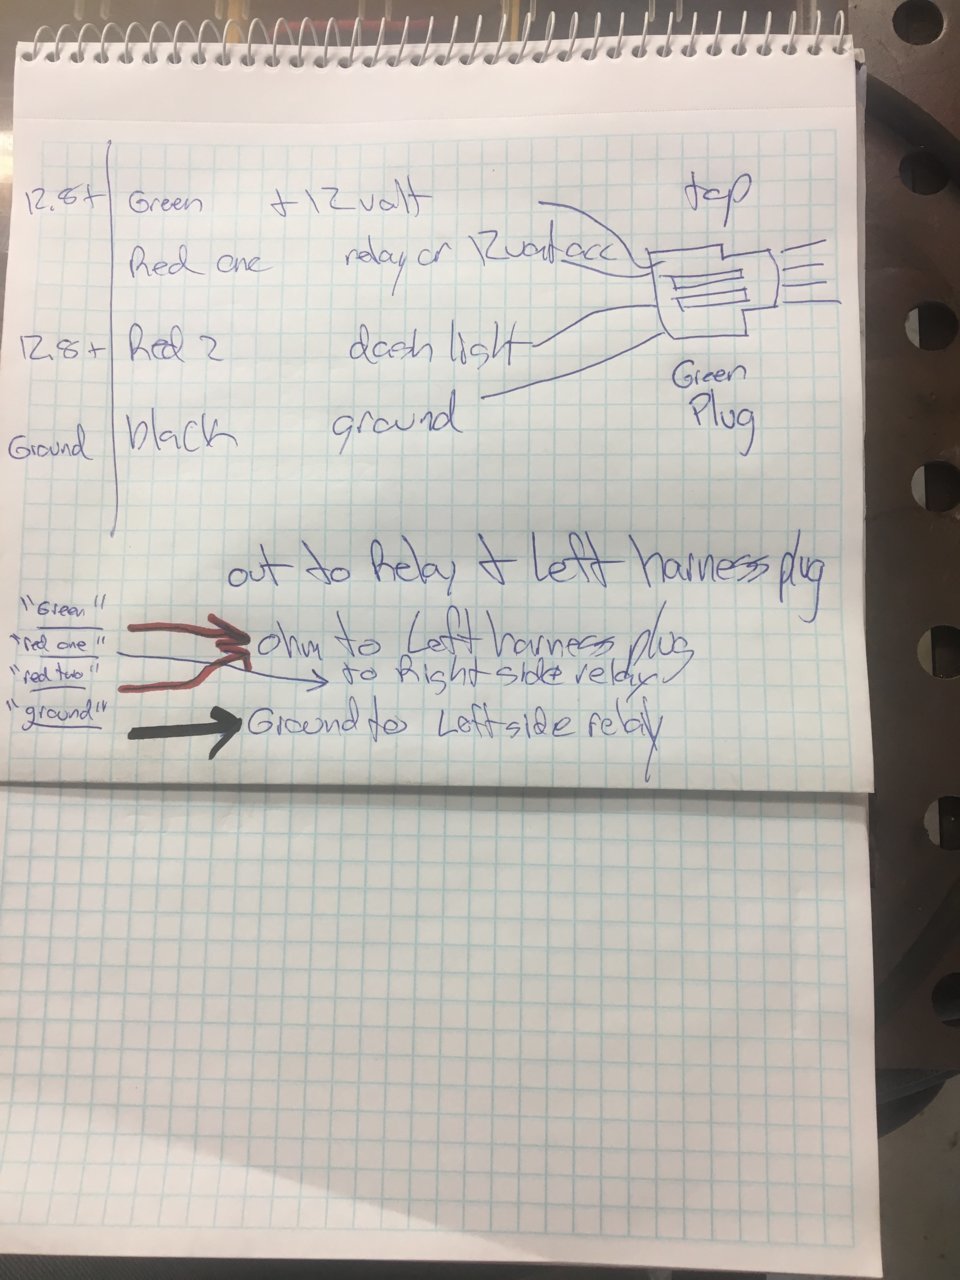 tap
12.8+ Green +12 valt
Red one relay or 12 volt acc
12.8+ Red 2 dash light
Green
Plug
Ground black ground
out to Relay & Left harness plug
"Green"
"red one" ohm to Left harness plug
"red two" to Right side relay
"ground" Ground to Left side relay